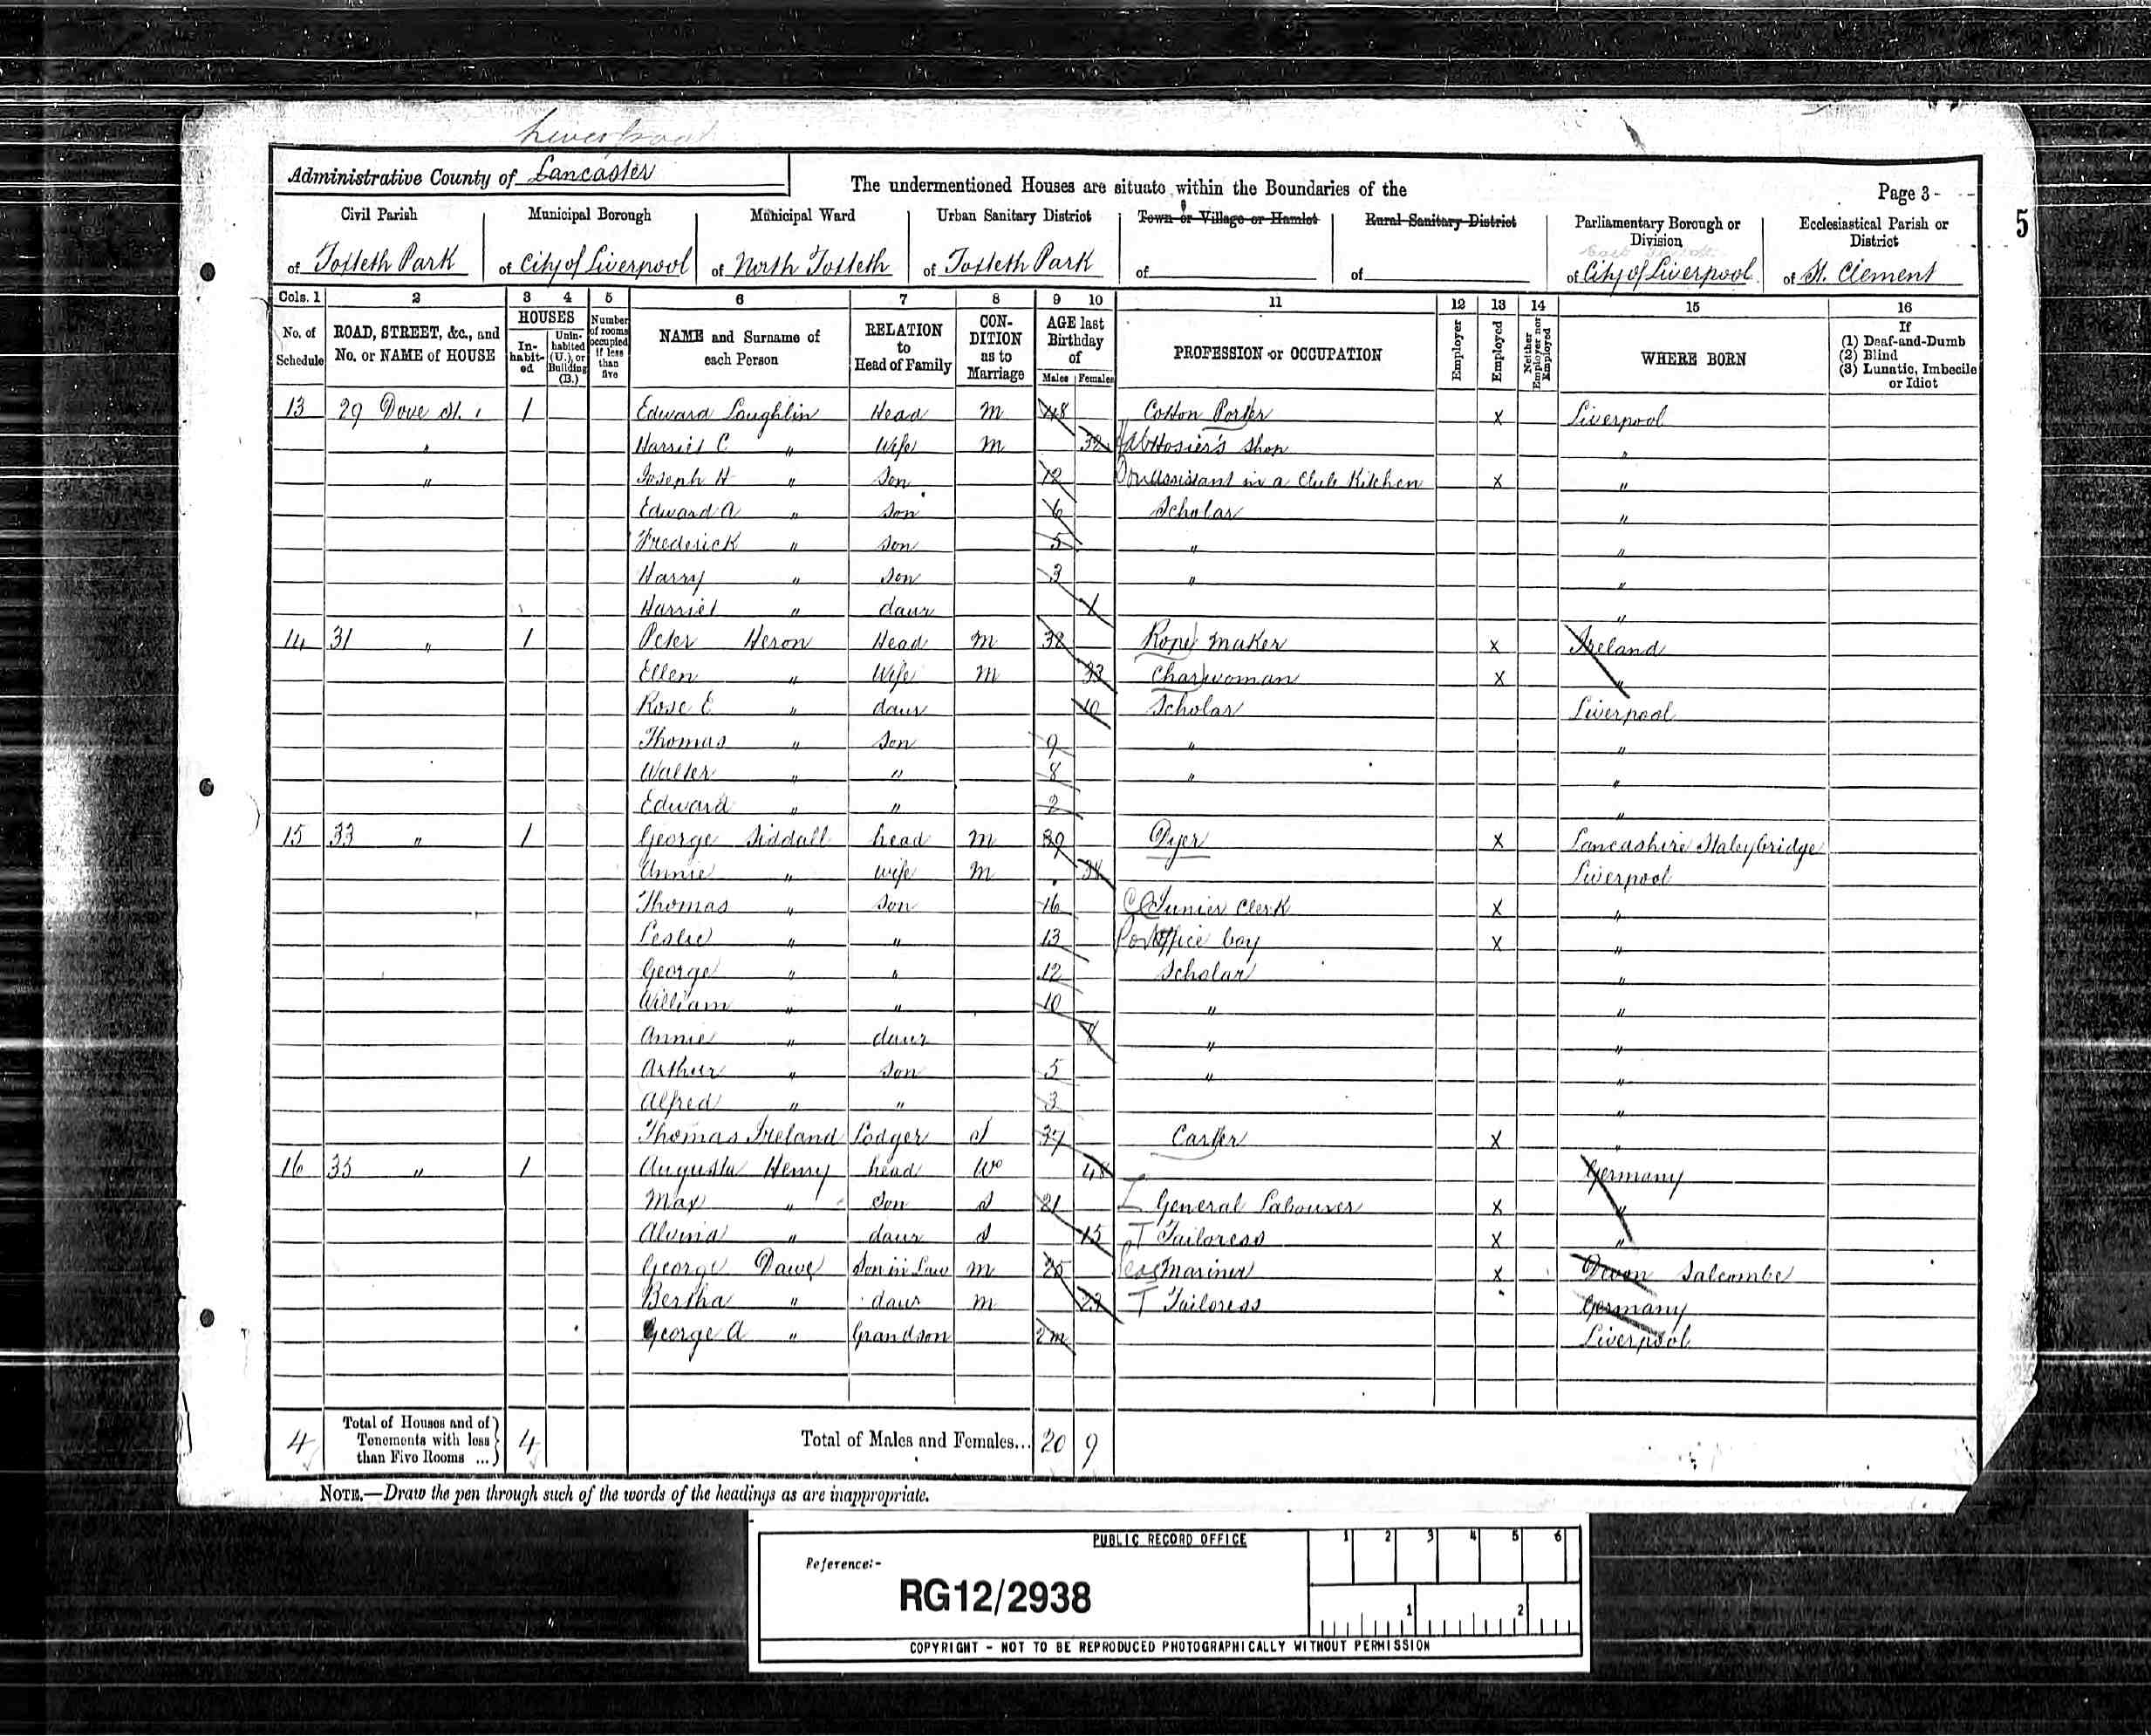 Liverpool
Administrative County of Lancaster
The undermentioned Houses are situate within the Boundaries of the
Page 3
5
Civil Parish of Toxteth Park
Municipal Borough of City of Liverpool
Municipal Ward of North Toxteth
Urban Sanitary District of Toxteth Park
Town or Village or Hamlet of
Rural Sanitary District of
Parliamentary Borough or Division of City of Liverpool
Ecclesiastical Parish or District of St. Clement
Cols. 1 2 3 4 5 6 7 8 9 10 11 12 13 14 15 16
No. of Schedule
ROAD, STREET, &c., and No. or NAME of HOUSE
HOUSES
In-habit-ed
Unin-habited (U.), or Building (B.)
Number of rooms occupied if less than five
NAME and Surname of each Person
RELATION to Head of Family
CON-DITION as to Marriage
AGE last Birthday of
Males Females
PROFESSION or OCCUPATION
Employer
Employed
Neither Employer nor Employed
WHERE BORN
If (1) Deaf-and-Dumb (2) Blind (3) Lunatic, Imbecile or Idiot
13 29 Dove St. 1 Edward Loughlin Head M 48 Cotton Porter X Liverpool
" Harriet C " Wife M 32 Hosier's Shop "
" Joseph H " Son 12 Assistant in a Club Kitchen X "
Edward A " Son 6 Scholar "
Frederick " Son 5 " "
Harry " Son 3 " "
Harriet " daur 1 "
14 31 " 1 Peter Heron Head M 32 Rope Maker X Ireland
Ellen " Wife M 33 Charwoman X "
Rose E " daur 10 Scholar Liverpool
Thomas " Son 9 " "
Walter " " 8 " "
Edward " " 2 "
15 33 " 1 George Siddall head M 39 Dyer X Lancashire Staleybridge
Annie " wife M 38 Liverpool
Thomas " Son 16 CC Junier Clerk X "
Leslie " " 13 Office boy X "
George " " 12 Scholar "
William " " 10 " "
Annie " daur " "
Arthur " Son 5 " "
Alfred " " 3 "
Thomas Ireland Lodger S 37 Carter X "
16 35 " 1 Augusta Henry head Wo 48 Germany
Max " Son S 21 L General Labourer X "
Alvina " daur S 15 T Tailoress X "
George Dawe Son in Law M 25 Mariner X Devon Salcombe
Bertha " daur M 23 T Tailoress Germany
George A " Grandson 2m Liverpool
4 Total of Houses and of Tenements with less than Five Rooms ... 4 Total of Males and Females... 20 9
NOTE.—Draw the pen through such of the words of the headings as are inappropriate.
PUBLIC RECORD OFFICE
1 2 3 4 5 6
Reference:-
RG12/2938
1 2
COPYRIGHT - NOT TO BE REPRODUCED PHOTOGRAPHICALLY WITHOUT PERMISSION